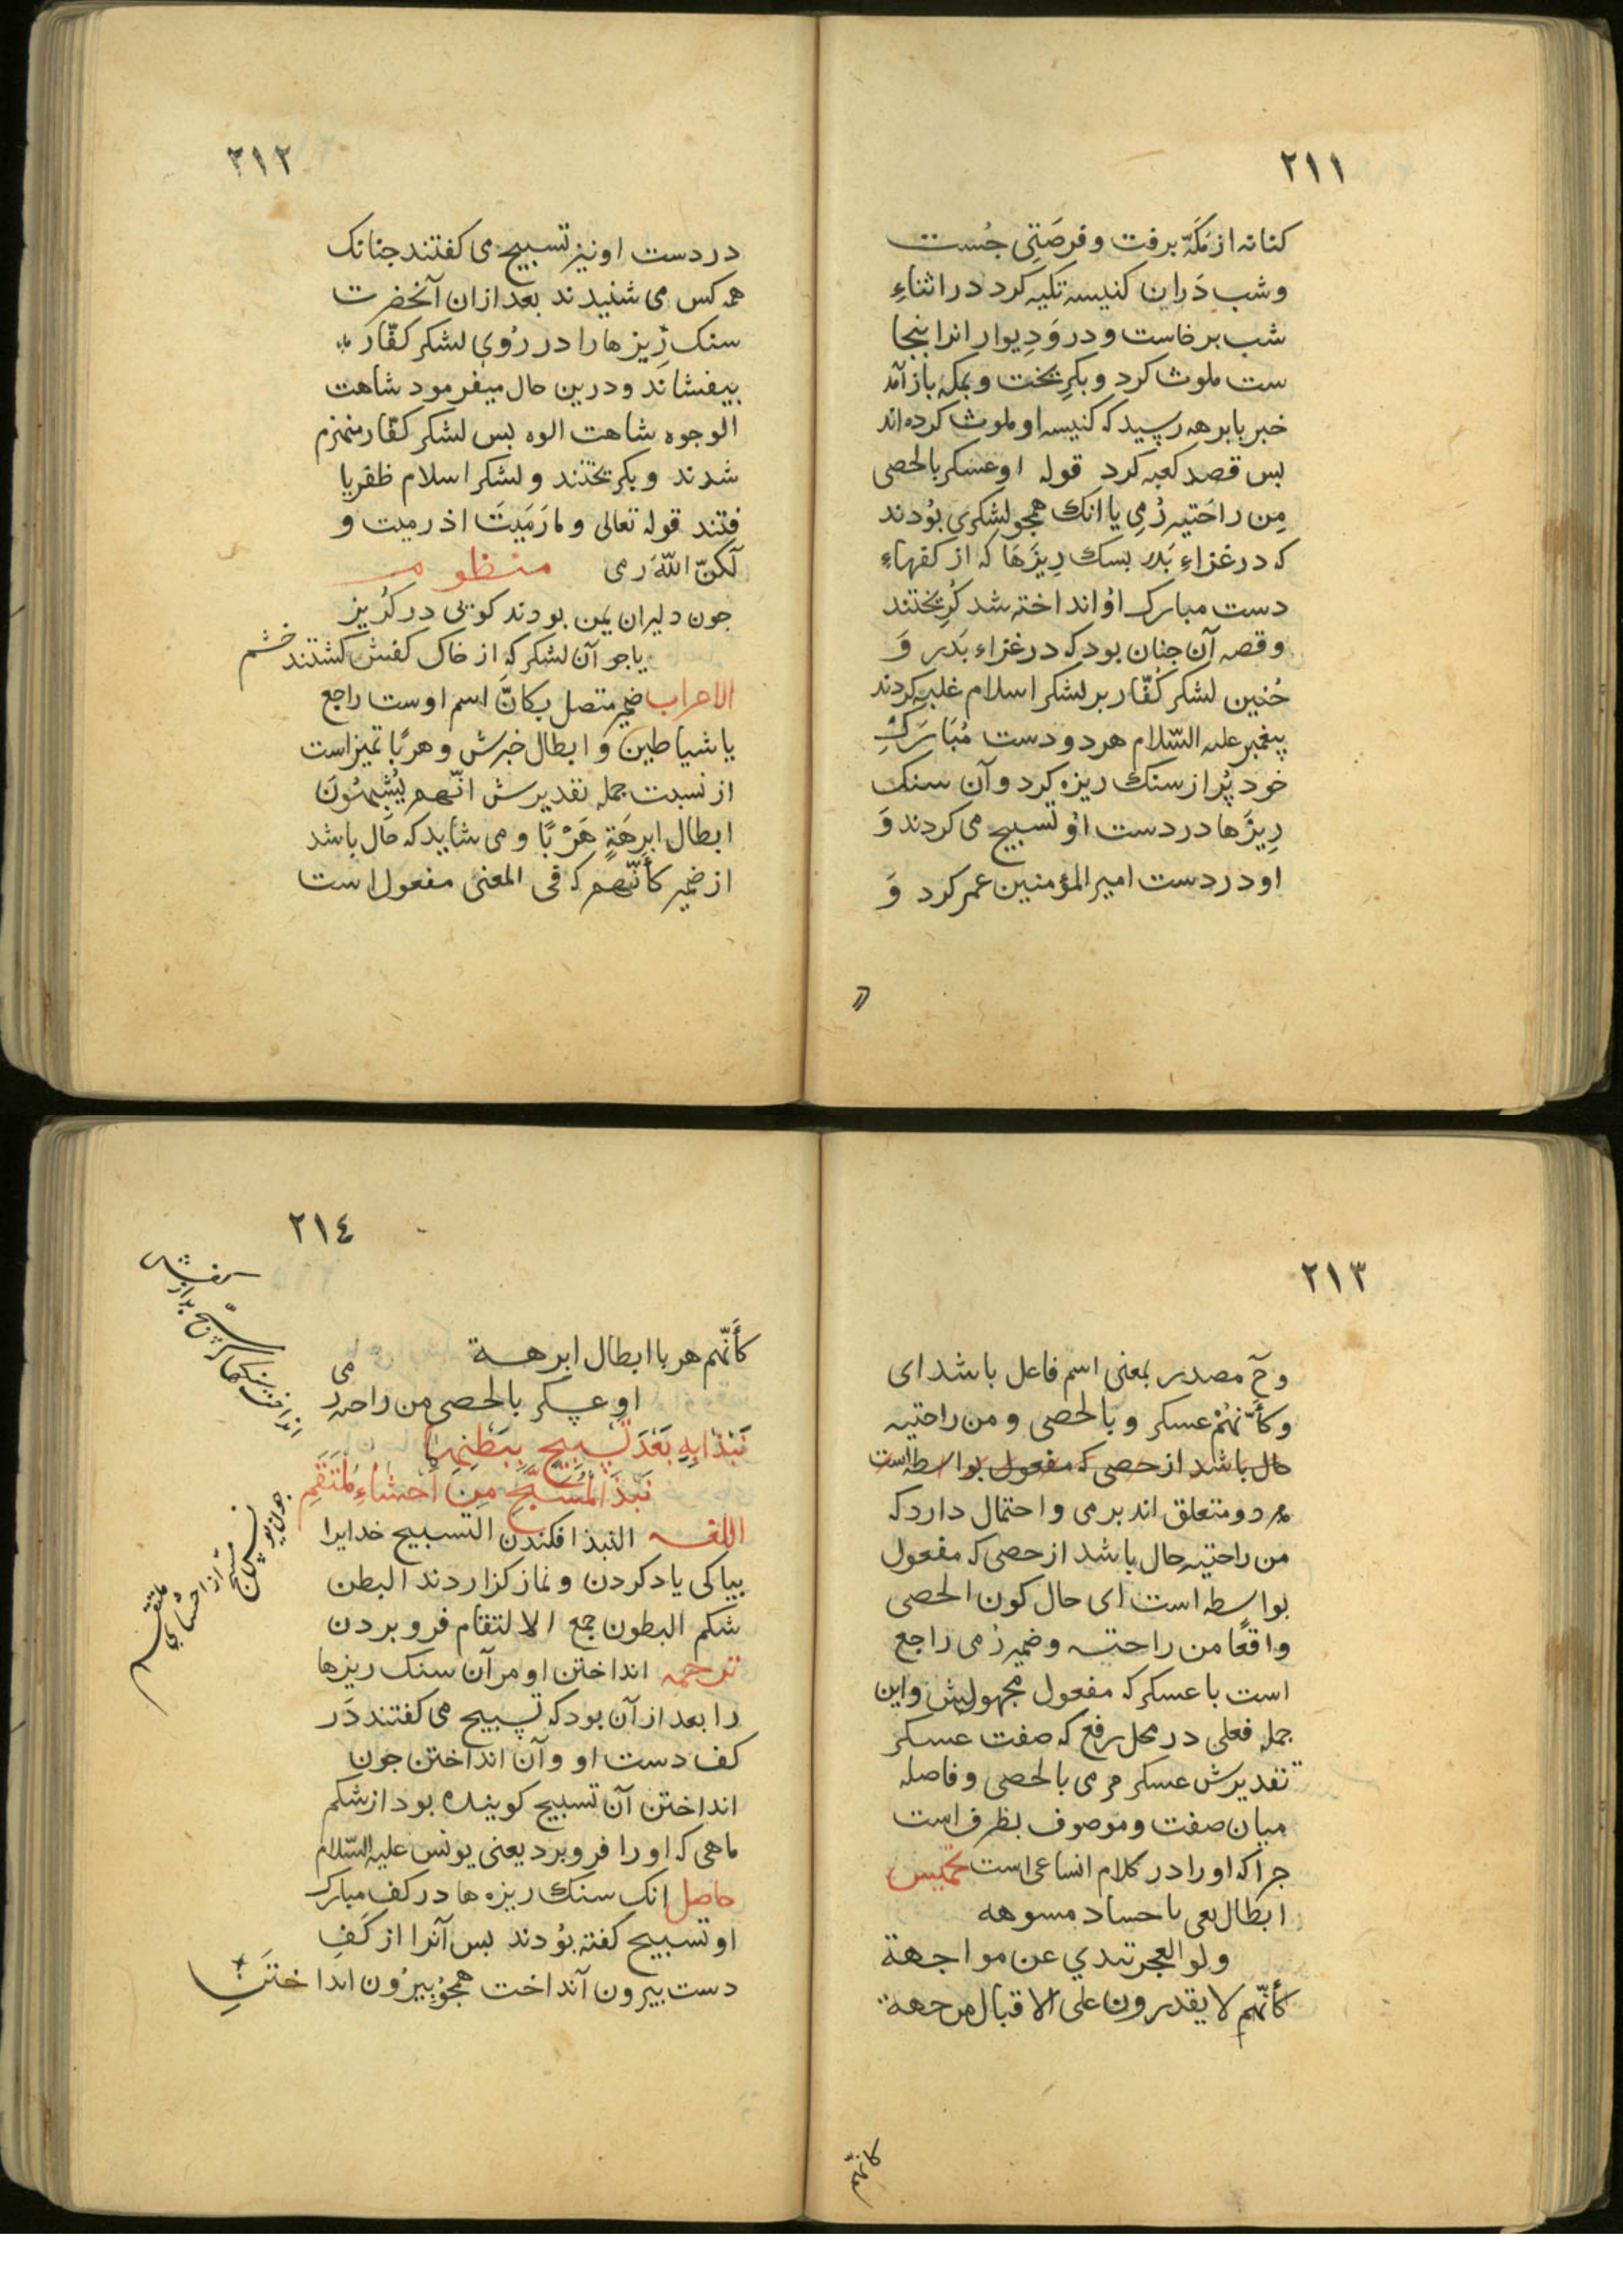 ٢١١
كنانه از مَكَّه برفت و فرصَتِی جُست
و شب دَران كنیسه تكیه كرد در اثناءِ
شب برخاست و در و دِیوار انرا بنجا
ست ملوث كرد و بكرِیخت و بمكه باز آمد
خبر بابرهه رسید كه كنیسه او ملوث كرده اند
بس قصد كعبه كرد قوله او عسكر بالحصی
مِن راحَتیه رُمِی یا انك همجو لشكری بُودند
كه در غزاءِ بَدر بسنك رِیزَها كه از كفهاءِ
دست مبارك اوُ انداخته شد كُرِیختند
و قصه آن جنان بود كه در غزاء بَدر وَ
حُنین لشكر كُفّار بر لشكر اسلام غلبه كردند
پیغمبر علیه السّلام هر دو دست مُبَارَكِ
خود پُر از سنك ریزه كرد و آن سنك
رِیزَها در دست اوُ تسبیح می كردند وَ
او در دست امیر المؤمنین عمر كرد وَ
٢١٢
در دست او نیز تسبیح می كفتند جنانك
همه كس می شنیدند بعد از ان آنحضرت
سنك رِیزها را در رُویِ لشكر كفّار
بیفشاند و درین حال میفرمود شاهت
الوجوه شاهت الوه بس لشكر كفّار منهزم
شدند و بكریختند و لشكر اسلام ظفر یا
فتند قوله تعالی و مارَمَیتَ اذ رمیت و
لَكنّ اللّهَ رَمی منظومه
جون دلیران یمن بودند كویی در كُریز
یا جو آن لشكر كه از خاك كفش كشتند خشم
الاعراب ضمیر متصل بكانّ اسم اوست راجع
یا شیاطین و ابطال خبرش و هربًا تمیز است
از نسبت جمله تقدیرش انّهم یُشبِهُونَ
ابطال ابرهَةٍ هَرْبًا و می شاید كه حَال باشد
از ضمیر كأنّهم كه فی المعنی مفعول است
٢١٣
و حَ مصدر بمعنی اسم فاعل باشد ای
و كأنّهُمْ عسكر و بالحصی و من راحتیه
حال باشد از حصی كه مفعول بواسطه است
هر دو متعلق اند برمی و احتمال دارد كه
من راحتیه حال باشد از حصی كه مفعول
بواسطه است ای حال كون الحصی
واقعًا من راحتیه و ضمیر رُمی راجع
است با عسكر كه مفعول مجهولیش و این
جمله فعلی در محل رفع كه صفت عسكر
تقدیرش عسكر مرمی بالحصی و فاصله
میان صفت و موصوف بظرف است
جرا كه او را در كلام اتساعی است تخمیس
ابطال بغی باحساد مسوهه
ولو العجر تبدي عن مواجهة
كأنّهم لا یقدرون علی الاقبال من جهة
٢١٤
كأنّهم هربا ابطال ابرهة
او عسكر بالحصی من راحتیه رمی
نَبْذًا بِهِ بَعْدَ تَسْبِیحٍ بِبَطْنِهِمَا
نَبْذَ الْمُسَبِّحِ مِنْ اَحْشَاءِ مُلْتَقِمِ
اللغه النبذ افكندن التسبیح خدایرا
بپاكی یاد كردن و نماز كزاردند البطن
شكم البطون جمع الالتقام فرو بردن
ترجمه انداختن او مر آن سنك ریزها
را بعد از آن بود كه تسبیح می كفتند دَر
كف دست او و آن انداختن جون
انداختن آن تسبیح كوینده بود از شكم
ماهی كه او را فرو برد یعنی یونس علیه السّلام
حاصل انك سنك ریزه ها در كف مبارك
او تسبیح كفته بوُدند بس آنرا از كَفِ
دست بیرون آنداخت همجوُ بیرُون انداختَنِ